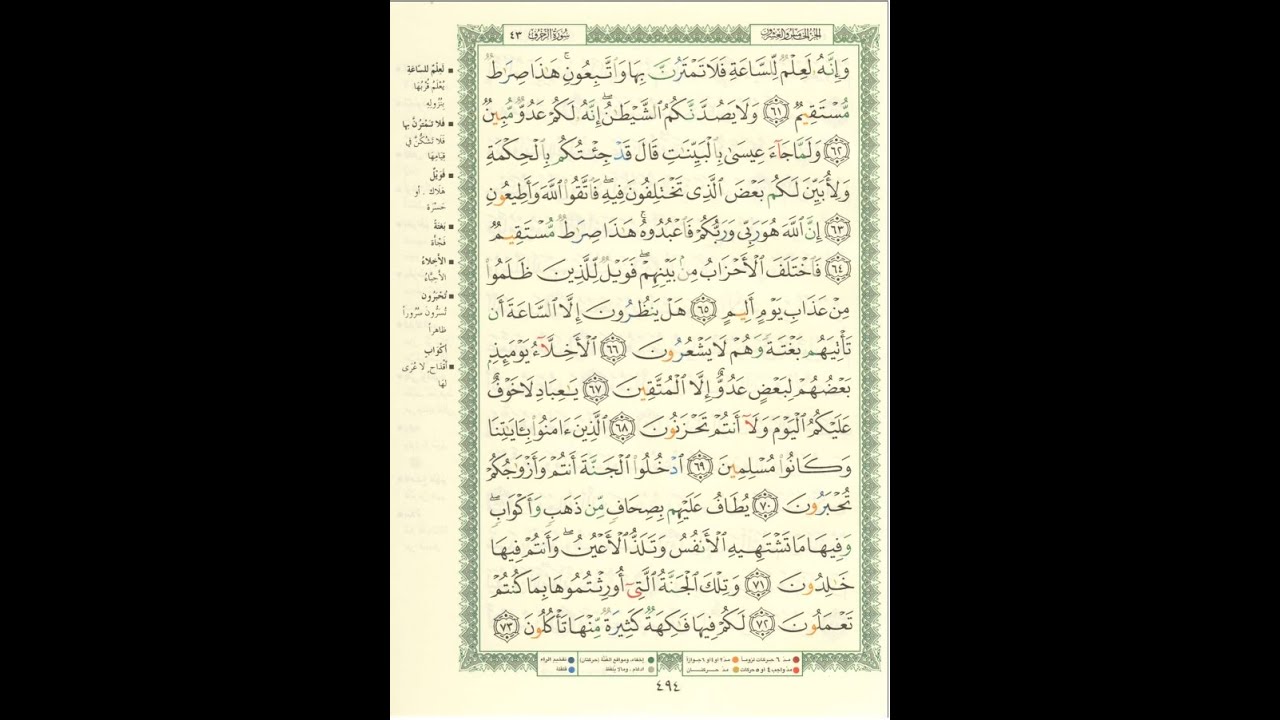 الجزء الخامس والعشرون
سورة الزخرف ٤٣
وَإِنَّهُۥ لَعِلْمٌ لِّلسَّاعَةِ فَلَا تَمْتَرُنَّ بِهَا وَٱتَّبِعُونِ ۚ هَٰذَا صِرَٰطٌ
مُّسْتَقِيمٌ ﴿٦١﴾ وَلَا يَصُدَّنَّكُمُ ٱلشَّيْطَٰنُ ۖ إِنَّهُۥ لَكُمْ عَدُوٌّ مُّبِينٌ
﴿٦٢﴾ وَلَمَّا جَآءَ عِيسَىٰ بِٱلْبَيِّنَٰتِ قَالَ قَدْ جِئْتُكُم بِٱلْحِكْمَةِ
وَلِأُبَيِّنَ لَكُم بَعْضَ ٱلَّذِى تَخْتَلِفُونَ فِيهِ ۖ فَٱتَّقُوا۟ ٱللَّهَ وَأَطِيعُونِ
﴿٦٣﴾ إِنَّ ٱللَّهَ هُوَ رَبِّى وَرَبُّكُمْ فَٱعْبُدُوهُ ۚ هَٰذَا صِرَٰطٌ مُّسْتَقِيمٌ
﴿٦٤﴾ فَٱخْتَلَفَ ٱلْأَحْزَابُ مِنۢ بَيْنِهِمْ ۖ فَوَيْلٌ لِّلَّذِينَ ظَلَمُوا۟
مِنْ عَذَابِ يَوْمٍ أَلِيمٍ ﴿٦٥﴾ هَلْ يَنظُرُونَ إِلَّا ٱلسَّاعَةَ أَن
تَأْتِيَهُم بَغْتَةً وَهُمْ لَا يَشْعُرُونَ ﴿٦٦﴾ ٱلْأَخِلَّآءُ يَوْمَئِذٍۭ
بَعْضُهُمْ لِبَعْضٍ عَدُوٌّ إِلَّا ٱلْمُتَّقِينَ ﴿٦٧﴾ يَٰعِبَادِ لَا خَوْفٌ
عَلَيْكُمُ ٱلْيَوْمَ وَلَآ أَنتُمْ تَحْزَنُونَ ﴿٦٨﴾ ٱلَّذِينَ ءَامَنُوا۟ بِـَٔايَٰتِنَا
وَكَانُوا۟ مُسْلِمِينَ ﴿٦٩﴾ ٱدْخُلُوا۟ ٱلْجَنَّةَ أَنتُمْ وَأَزْوَٰجُكُمْ
تُحْبَرُونَ ﴿٧٠﴾ يُطَافُ عَلَيْهِم بِصِحَافٍ مِّن ذَهَبٍ وَأَكْوَابٍ ۖ
وَفِيهَا مَا تَشْتَهِيهِ ٱلْأَنفُسُ وَتَلَذُّ ٱلْأَعْيُنُ ۖ وَأَنتُمْ فِيهَا
خَٰلِدُونَ ﴿٧١﴾ وَتِلْكَ ٱلْجَنَّةُ ٱلَّتِىٓ أُورِثْتُمُوهَا بِمَا كُنتُمْ
تَعْمَلُونَ ﴿٧٢﴾ لَكُمْ فِيهَا فَٰكِهَةٌ كَثِيرَةٌ مِّنْهَا تَأْكُلُونَ ﴿٧٣﴾
■ لَعِلْمٌ للسَّاعَةِ
يُعْلَمُ قُرْبُهَا
بِنُزُولِهِ
■ فلا تَمْتَرُنَّ بها
فَلا تَشُكُّنَّ في
قِيَامِهَا
■ فَوَيْلٌ
هَلَاكٌ . أو
حَسْرَة
■ بَغتةً
فَجْأة
■ الأخِلاءُ
الأحِبَّاءُ
■ تُحْبَرُون
تُسَرُّونَ سُرُوراً
ظاهراً
أكْوَابٍ
■ أقْدَاحٍ لا عُرَى
لَهَا
مدّ ٦ حركات لزوماً
مدّ٢ او٤ او ٦ جوازاً
إخفاء، ومواقع الغُنَّة (حركتان)
تفخيم الراء
مدّ واجب ٤ او ٥ حركات
مدّ حــركتــان
ادغام ، ومالا يُلفظ
قلقلة
٤٩٤